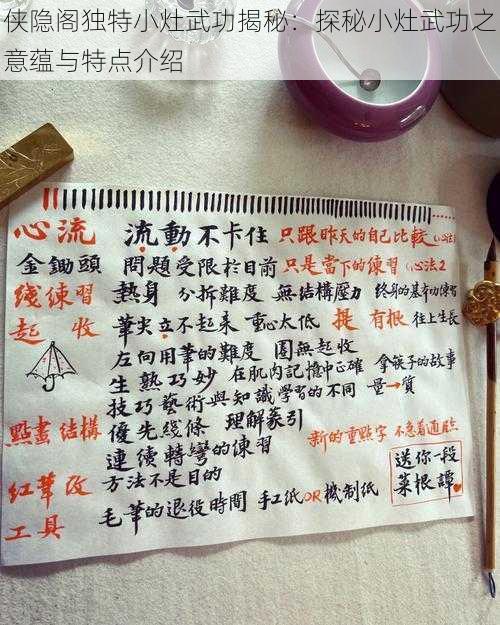 侠隐阁独特小灶武功揭秘：探秘小灶武功之
意蕴与特点介绍
心流 流動不卡住 只跟昨天的自己比較（心法1
金鋤頭 問題受限於目前 只是當下的練習（心法2
綫練習 熱身 分拆難度 無結構壓力 終身的基本功練習
起 收 筆尖立不起來 重心太低 提 有根 往上生長
左向用筆的難度 圆無起收
生 熟 巧 妙 在肌肉記憶中正確 拿筷子的故事
技巧藝術與知識學習的不同 量→質
點畫 結構 優先綫條 理解篆引
連續轉彎的練習 新的重點字 不急着通臨
紅筆改 方法不是目的 送你一段
工具 毛筆的退役時間 手工纸OR機制紙 菜根譚